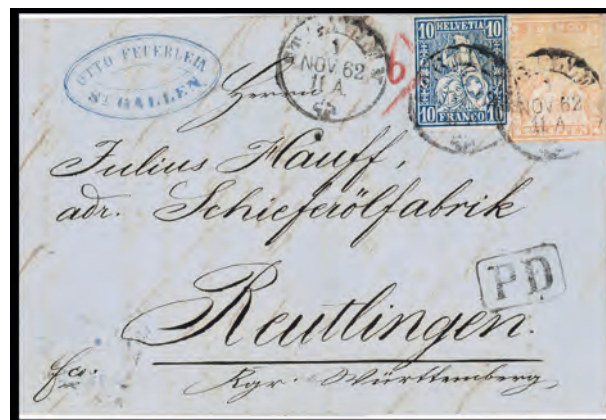 OTTO FEUERLEIN
ST GALLEN
1
NOV 62
11 A.
6
10 HELVETIA 10
10 FRANCO 10
FRANCO
1
NOV 62
11 A
Herrn
Julius Hauff,
adr. Schieferölfabrik
PD
Reutlingen.
fco.
Kgr. Württemberg,